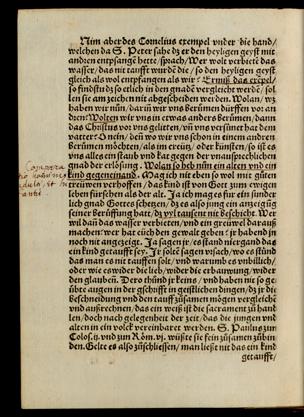 Nim aber des Cornelius exempel vnder die hand/
welchen da S. Peter sahe dz er den heyligen geyst mit
andren entpfangẽ hette/sprach/Wer wolt verbietẽ das
wasser/das nit taufft wurdẽ die/so den heyligen geyst
gleich als wol entpfangen als wir? Ermiß das exẽpel/
so findstu dz so etlich in den gnadẽ vergleicht werdẽ/sol
len sie am zeichen nit abgescheiden werden. Wolan/wz
haben wir nũn/darũm wir vns berümen dürffen vor an
dren? Wolten wir vns in etwas anders berümen/dann
das Christus vor vns gelitten/vñ vns versünet hat dem
vatter? O nein/deñ wo wir vns schon in einem andren
berümen möchten/als im creütz/oder künsten/so ist es
vns alles ein staub vnd kat gegen der vnaußsprechlichen
gnad der erlösung. Wolan so heb nũn ein alten vnd ein
kind gegeneinand. Mag ich nit eben so wol mitt gůten
treüwen verhoffen/das kind ist von Gott zum ewigen
leben fürsehen als der alt. Ja ich mag es für ein sunder
lich gnad Gottes schetzen/dz es also jung ein anzeigũg
seiner berüffung hat/dz vyl tausent nit beschicht. Wer
wil dañ das wasser verbieten/vnd ein greüwel darauß
machen: wer hat eüch den gewalt geben: jr habend jn
noch nit angezeigt. Ja sagen jr/es stand niergand das
ein kind getaufft sey. Jr soltẽ sagen vrsach/wo es stünd
das man es nit tauffen solt/vnd warumb es vnbillich/
oder wie es wider die lieb/wider die erbauwung/wider
den glauben. Dero thůnd jr keins/vnd haben nit so ge
übte augen in der gschrifft in geistlichen dingen/dz jr die
beschneidung vnd den tauff zůsamen mögen vergleichẽ
vnd außrechnen/das ein weiß ist die sacrament zů hand
len/doch nach gelegenheit der zeit/das die jungen vnd
alten in ein volck vereinbaret werden. S. Paulus zum
Colos. ij. vnd zum Röm. vj. wüßte sie fein zůsamen zů bin
den. Gelte es also zůschliessen/man ließt nit das ein kind
getaufft/